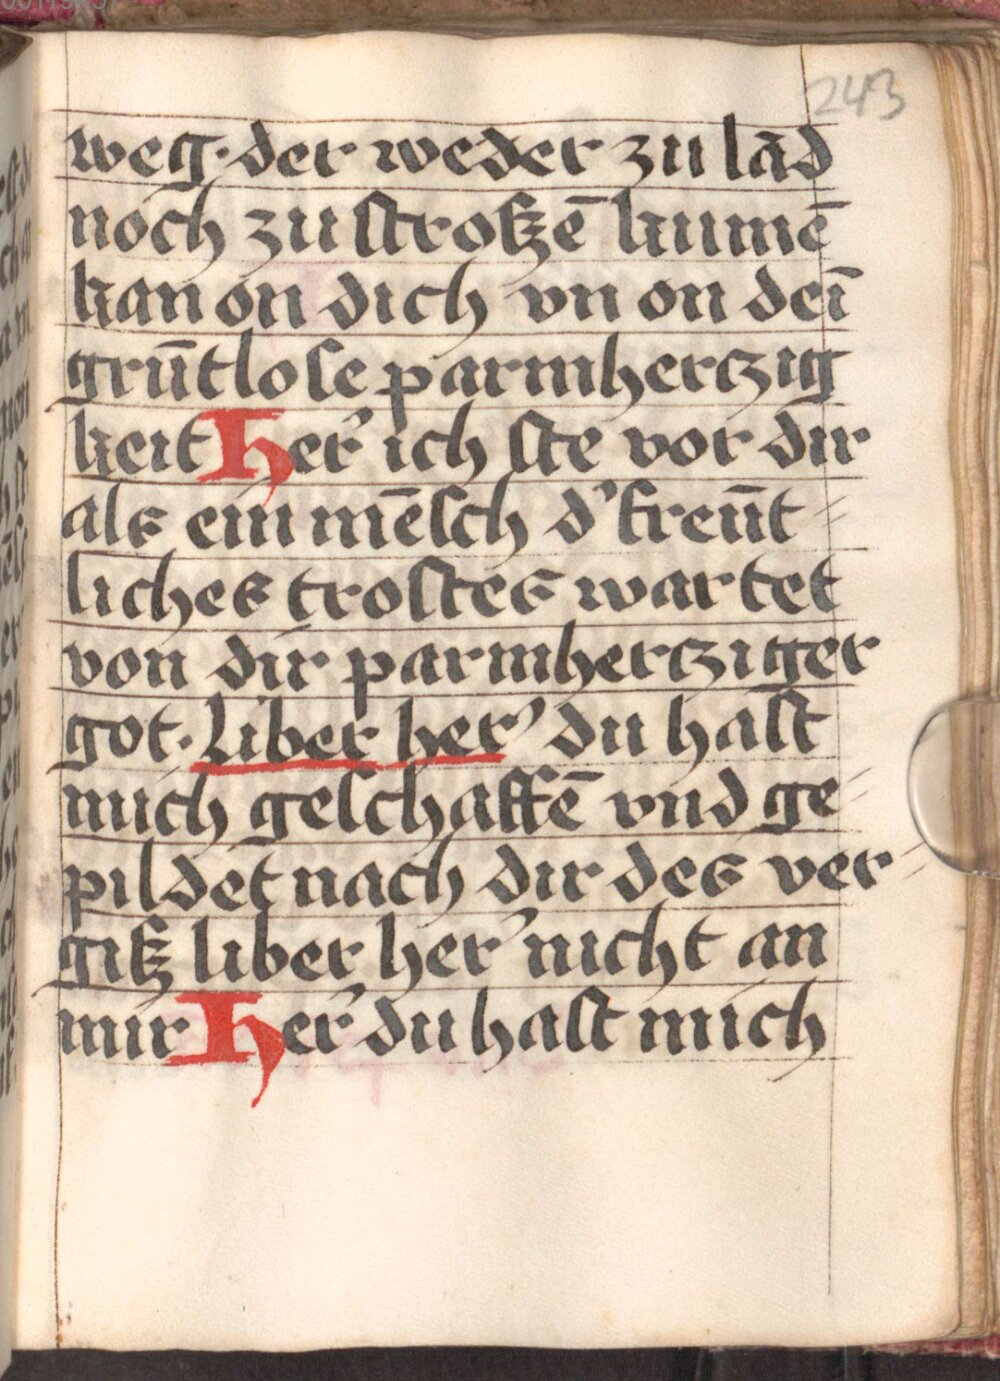 243
weg · der weder zu lād
noch zu stroßē kumē
kan on dich vn on deī
grūtlose parmherczig
keit Her' ich ste vor dir
als ein mēsch d' freūt
liches trostes wartet
von dir parmhercziger
got · Liber her' du hast
mich geschaffē vnd ge
pildet nach dir des ver
giß liber her' nicht an
mir Her' du hast mich